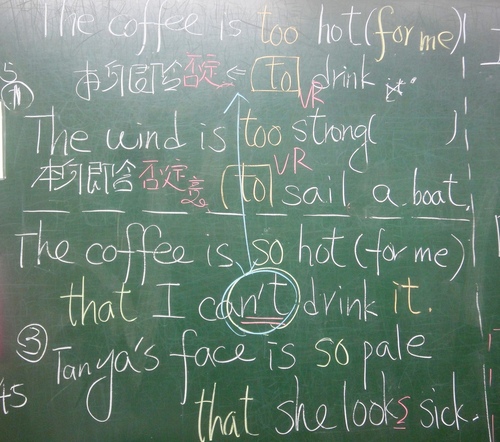 The coffee is too hot (for me)
本身即含否定 ⇐ to drink it
VR
The wind is too strong( ),
VR
本身即含否定意 (to sail a boat.
The coffee is so hot (for me)
that I can't drink it.
③ Tanya's face is so pale
45 that she looks sick.